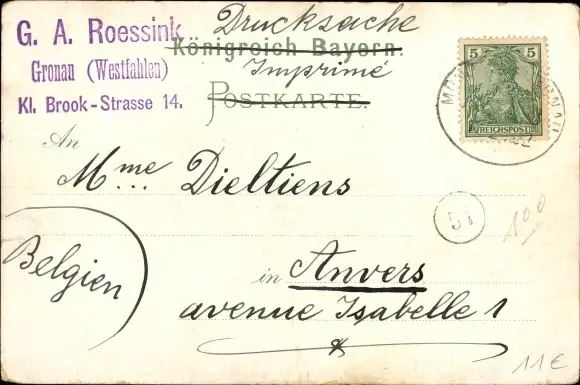 G. A. Roessink
Gronau (Westfahlen)
Kl. Brook-Strasse 14.
Drucksache
Königreich Bayern.
Imprimé
POSTKARTE.
5 5
REICHSPOST
An
Mme Dieltiens
51
100
Belgien
in Anvers
avenue Isabelle 1
11€